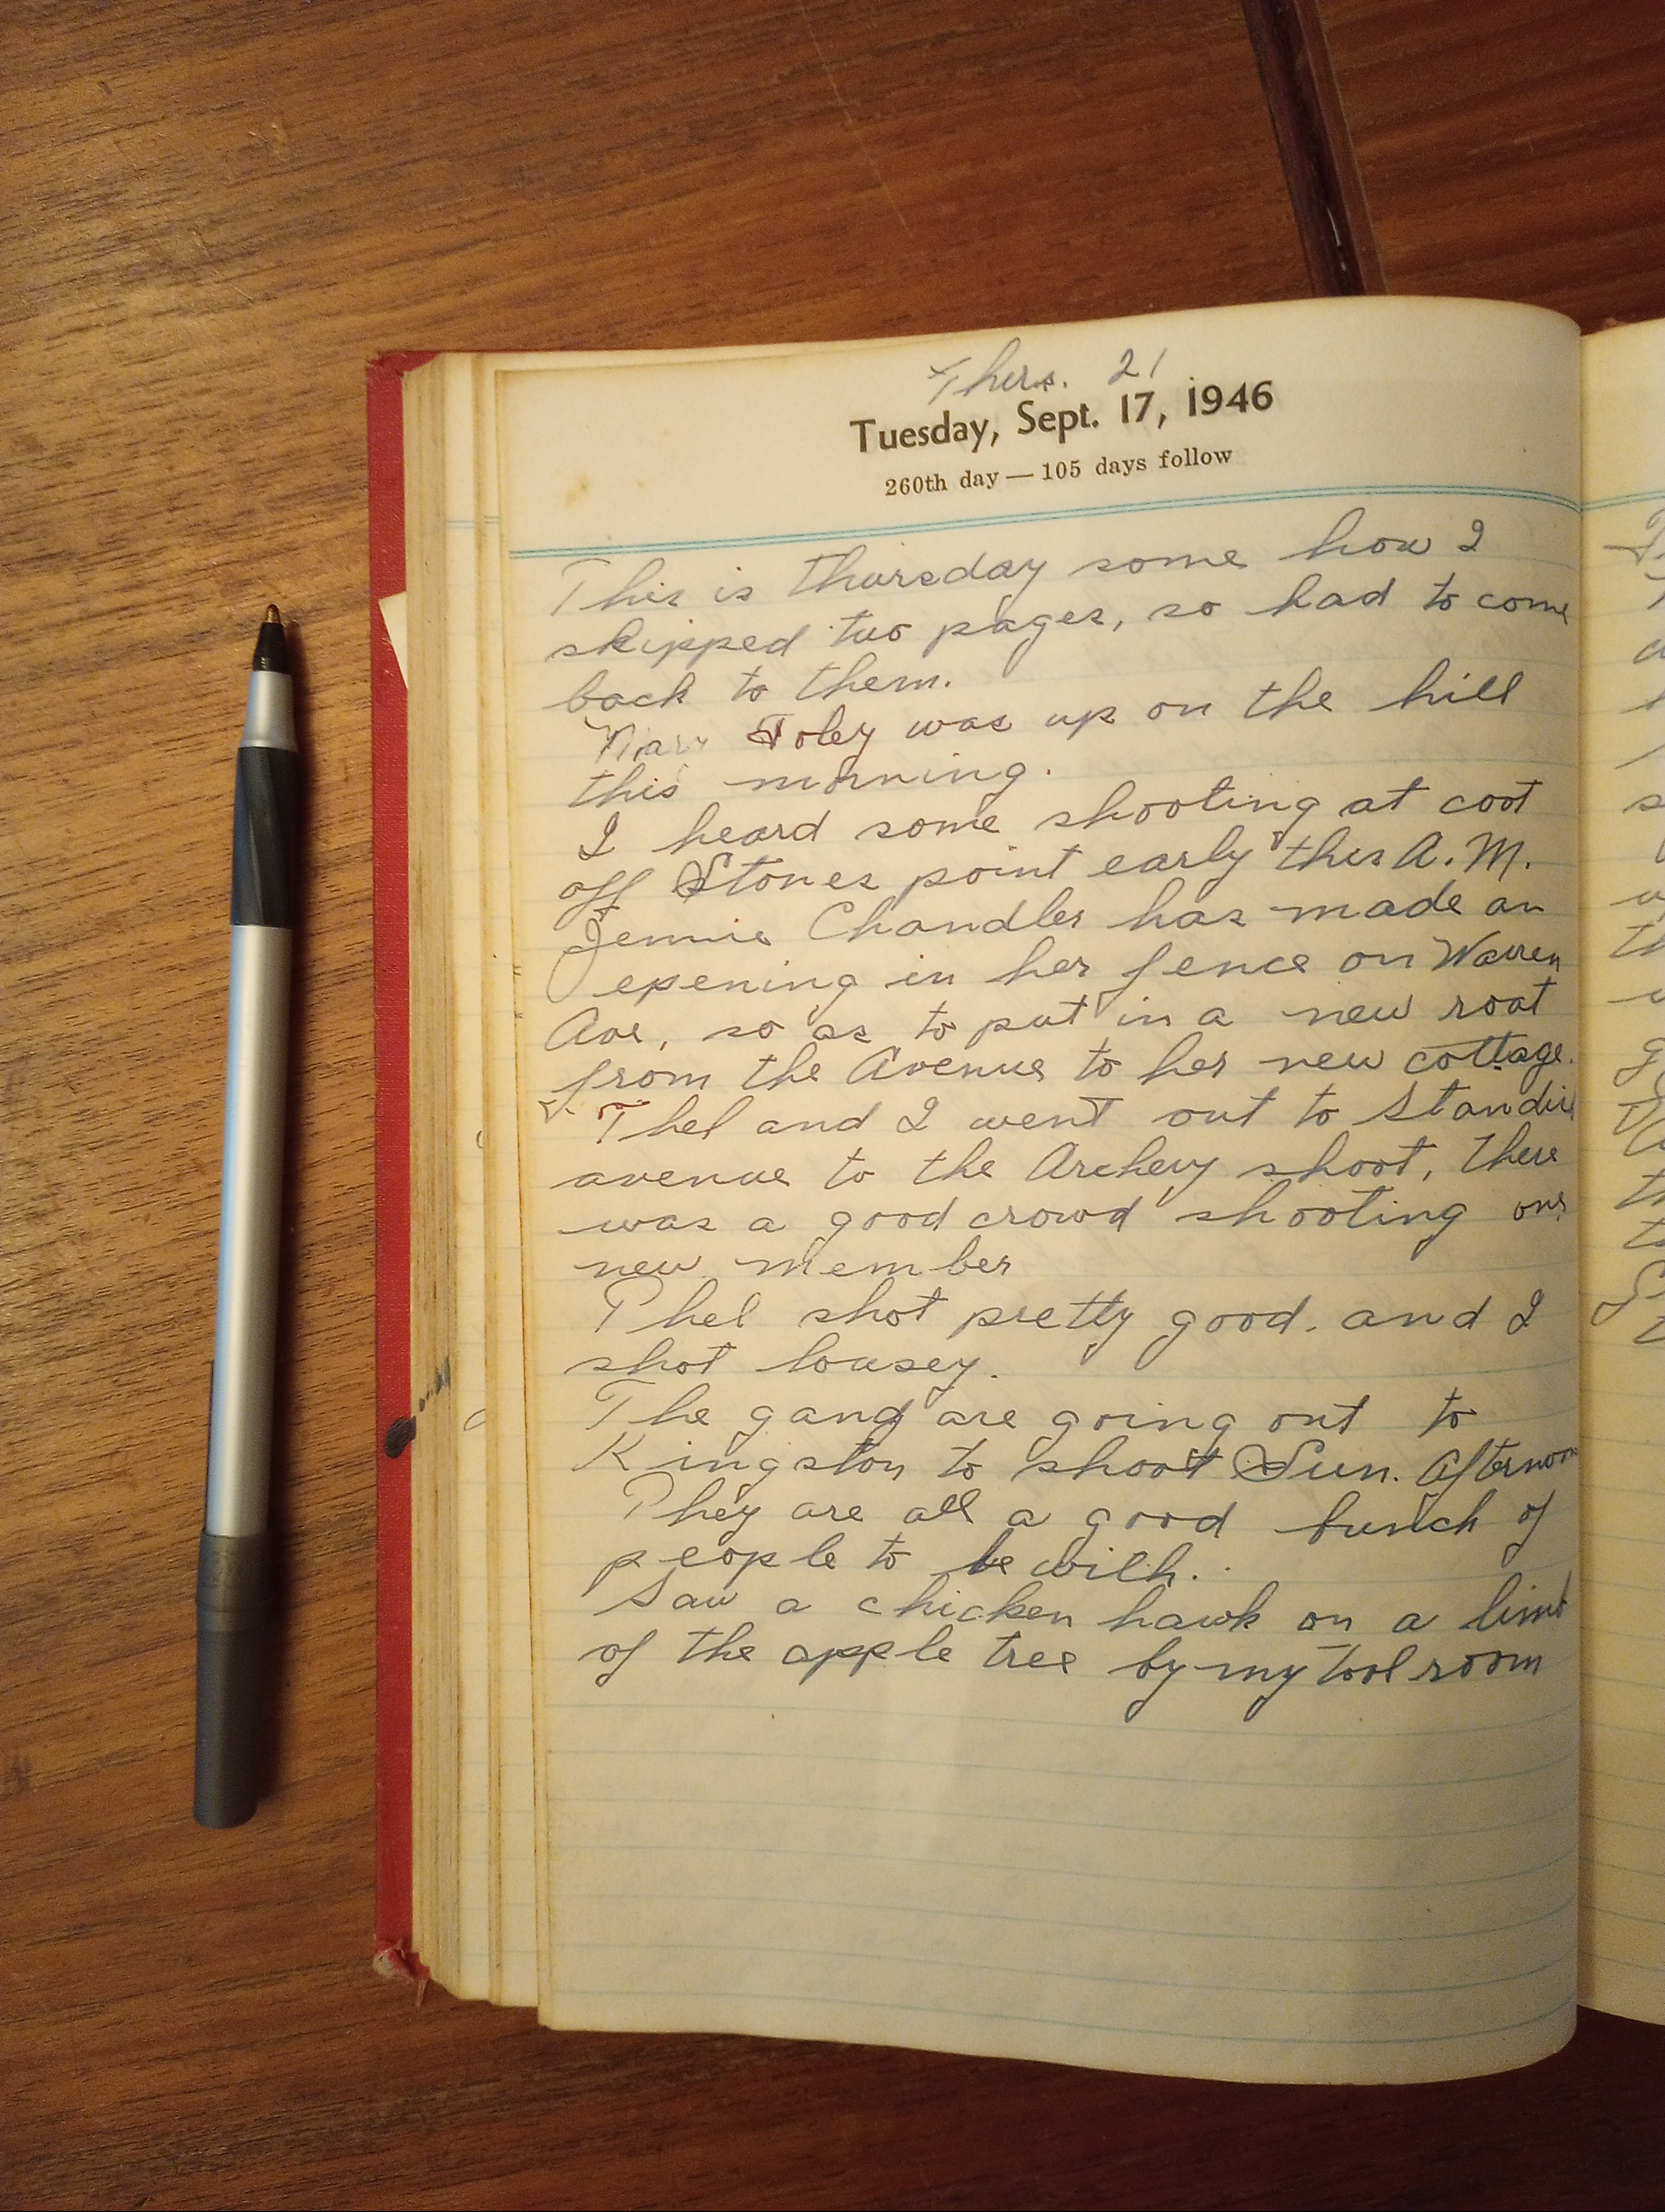 Thurs. 21
Tuesday, Sept. 17, 1946
260th day — 105 days follow
This is thursday some how I
skipped two pages, so had to come
back to them.
Mary Foley was up on the hill
this morning.
I heard some shooting at coot
off Stones point early this A.M.
Jennie Chandler has made an
opening in her fence on Warren
Ave, so as to put in a new roat
from the Avenue to her new cottage.
Thel and I went out to Standis
avenue to the Archery shoot, there
was a good crowd shooting one
new member
Thel shot pretty good. and I
shot lousey.
The gang are going out to
Kingston to shoot Sun. Afternoon
They are all a good bunch of
people to be with.
Saw a chicken hawk on a limb
of the apple tree by my tool room